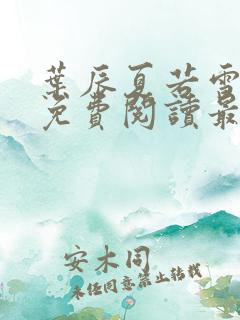 葉辰夏若雪
免費閱讀最
安木同
未经同意禁止转载